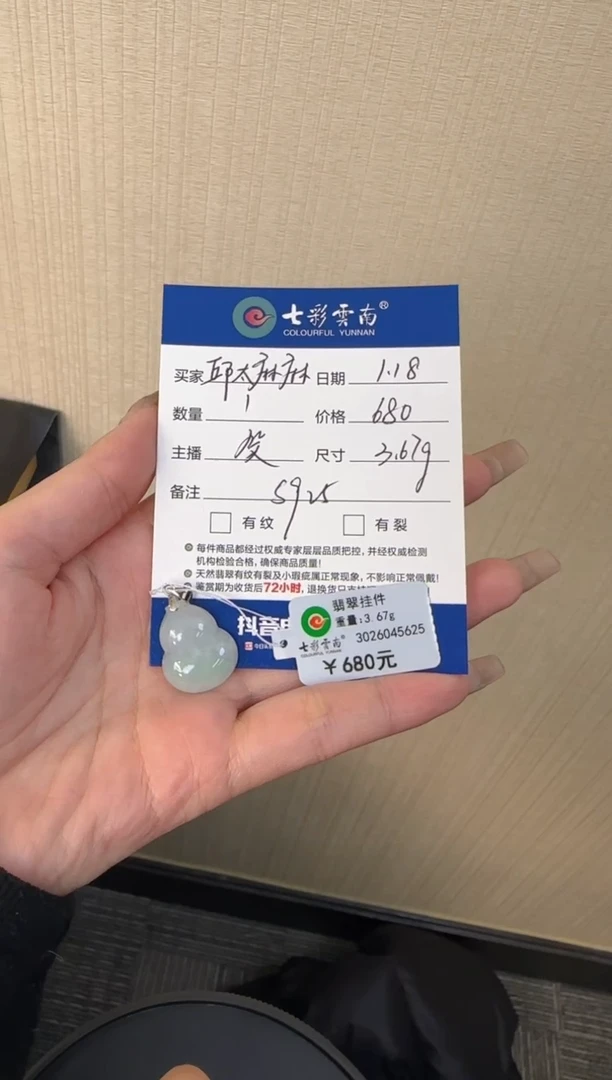 七彩雲南®
COLOURFUL YUNNAN
买家 邱太麻麻 日期 1.18
数量 1 价格 680
主播 尺寸 3.67g
备注 S925
有纹 有裂
每件商品都经过权威专家层层品质把控,并经权威检测
机构检验合格,确保商品质量!
天然翡翠有纹有裂及小瑕疵属正常现象,不影响正常佩戴!
鉴赏期为收货后72小时,退换货只支持
抖音电
翡翠挂件
重量:3.67g
七彩雲南®
COLOURFUL YUNNAN
3026045625
¥680元